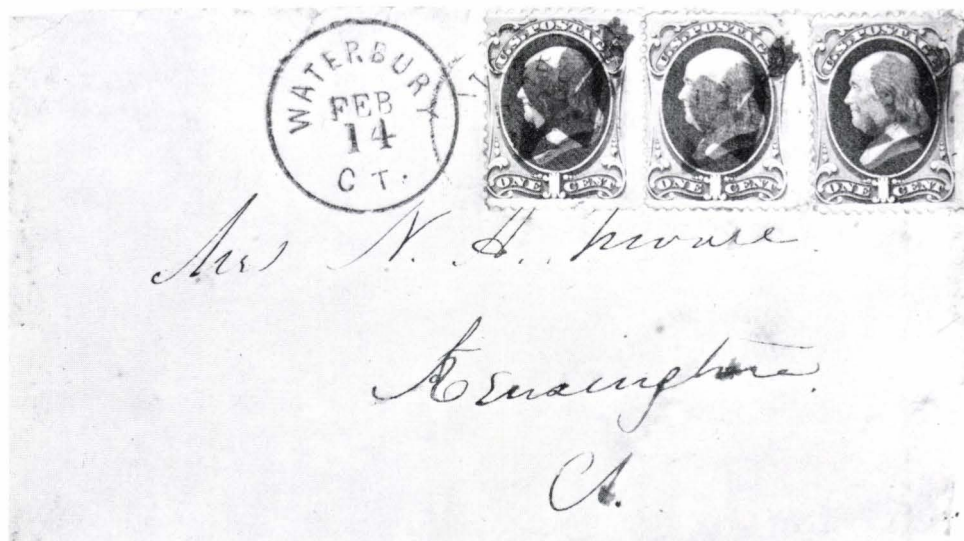 WATERBURY
FEB
14
CT.
U.S. POSTAGE
ONE 1 CENT
U.S. POSTAGE
ONE 1 CENT
U.S. POSTAGE
ONE 1 CENT
Mrs N. H. Moore
Kensington
Ct.